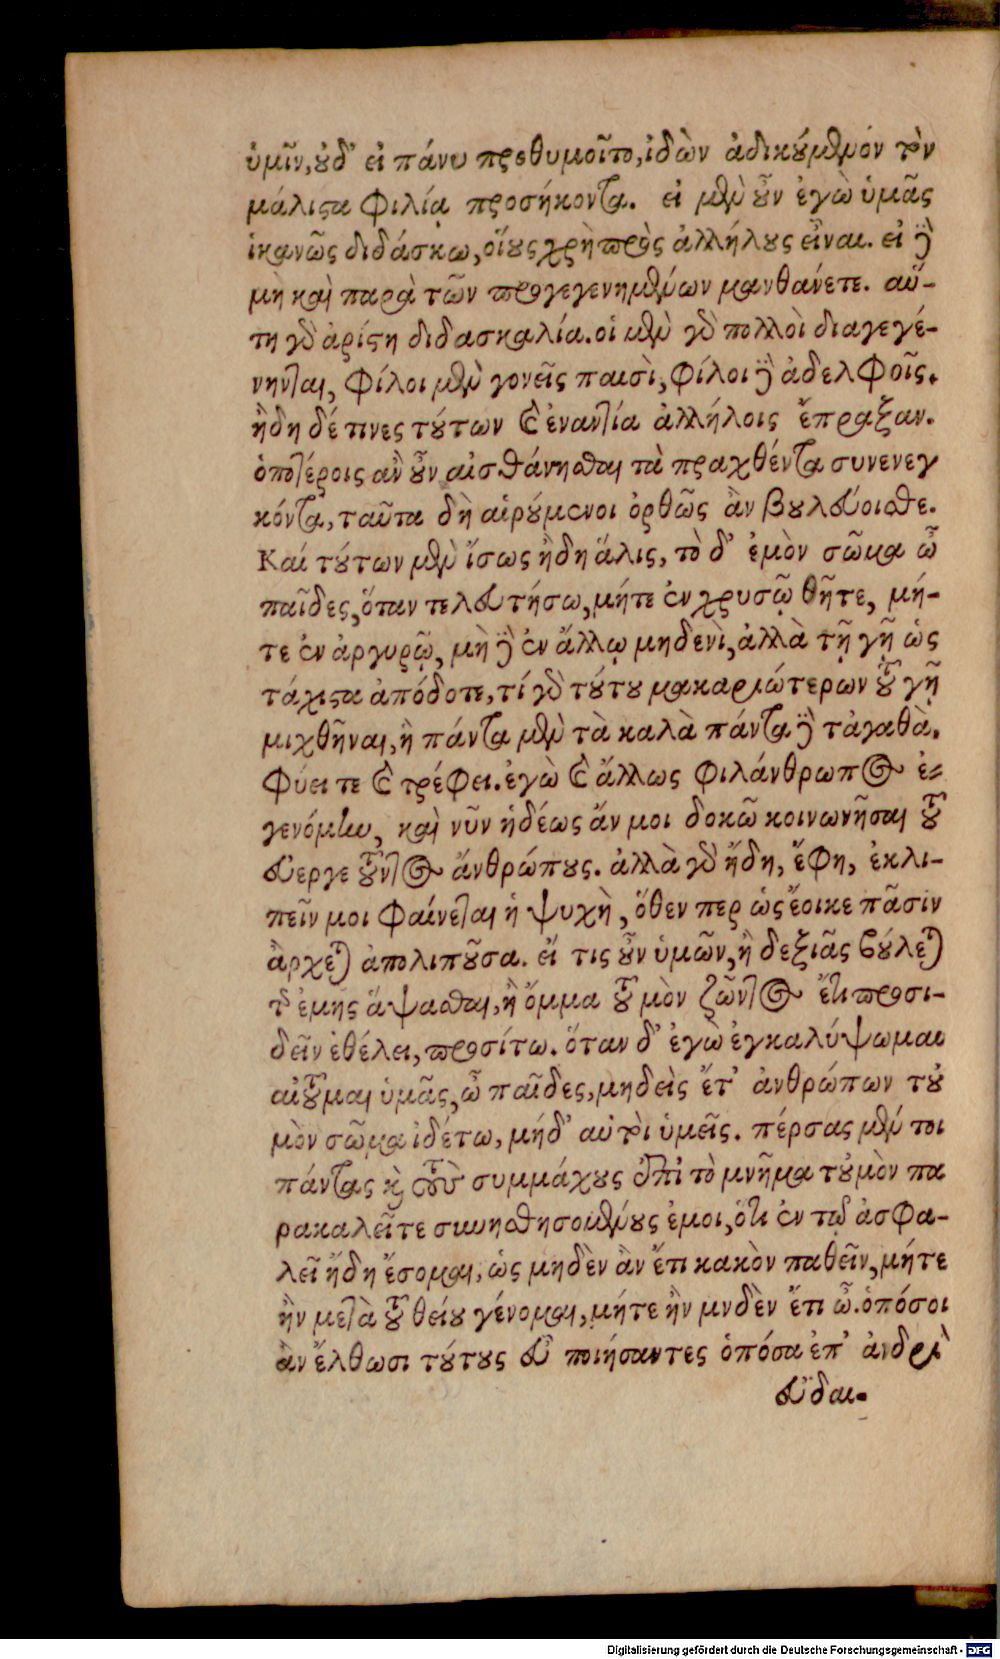 ὑμῖν, οὐδ’ εἰ πάνυ προθυμοῖτο, ἰδὼν ἀδικούμενον τὸν
μάλιστα φιλίᾳ προσήκοντα. εἰ μὲν οὖν ἐγὼ ὑμᾶς
ἱκανῶς διδάσκω, οἵους χρὴ πρὸς ἀλλήλους εἶναι. εἰ δὲ
μὴ καὶ παρὰ τῶν προγεγενημένων μανθάνετε. αὕ-
τη γὰρ ἀρίστη διδασκαλία. οἱ μὲν γὰρ πολλοὶ διαγεγέ-
νηνται, φίλοι μὲν γονεῖς παισὶ, φίλοι δὲ ἀδελφοῖς.
ἤδη δέ τινες τούτων καὶ ἐναντία ἀλλήλοις ἔπραξαν.
ὁποτέροις ἂν οὖν αἰσθάνησθαι τὰ πραχθέντα συνενεγ
κόντα, ταῦτα δὴ αἱρούμενοι ὀρθῶς ἂν βουλεύοισθε.
Καί τούτων μὲν ἴσως ἤδη ἅλις, τὸ δ’ ἐμὸν σῶμα ὦ
παῖδες, ὅταν τελευτήσω, μήτε ἐν χρυσῷ θῆτε, μή-
τε ἐν ἀργυρῷ, μὴ δὲ ἐν ἄλλῳ μηδενὶ, ἀλλὰ τῇ γῇ ὡς
τάχιστα ἀπόδοτε, τί γὰρ τούτου μακαριώτερων τοῦ γῇ
μιχθῆναι, ἣ πάντα μὲν τὰ καλὰ πάντα δὲ τἀγαθὰ.
φύει τε καὶ τρέφει. ἐγὼ καὶ ἄλλως φιλάνθρωπος ἐ-
γενόμην, καὶ νῦν ἡδέως ἄν μοι δοκῶ κοινωνῆσαι τοῦ
εὐεργετοῦντος ἀνθρώπους. ἀλλὰ γὰρ ἤδη, ἔφη, ἐκλι-
πεῖν μοι φαίνεται ἡ ψυχὴ, ὅθεν περ ὡς ἔοικε πᾶσιν
ἄρχεται ἀπολιποῦσα. εἴ τις οὖν ὑμῶν, ἢ δεξιᾶς βούλεται
τῆς ἐμῆς ἅψασθαι, ἢ ὄμμα τοῦ μὸν ζῶντος ἔτι προσι-
δεῖν ἐθέλει, προσίτω. ὅταν δ’ ἐγὼ ἐγκαλύψωμαι
αἰτοῦμαι ὑμᾶς, ὦ παῖδες, μηδεὶς ἔτ’ ἀνθρώπων τοὐ
μὸν σῶμα ἰδέτω, μήδ’ αὐτοὶ ὑμεῖς. πέρσας μέν τοι
πάντας καὶ τοὺς συμμάχους ἐπὶ τὸ μνῆμα τοὐμὸν πα
ρακαλεῖτε συνησθησομένους ἐμοι, ὅτι ἐν τῷ ἀσφα-
λεῖ ἤδη ἔσομαι, ὡς μηδὲν ἂν ἔτι κακὸν παθεῖν, μήτε
ἢν μετὰ τοῦ θείου γένομαι, μήτε ἢν μνδὲν ἔτι ὦ. ὁπόσοι
ἂν ἔλθωσι τούτους εὖ ποιήσαντες ὁπόσα ἐπ’ ἀνδρὶ
εὐδαι-
Digitalisierung gefördert durch die Deutsche Forschungsgemeinschaft - DFG